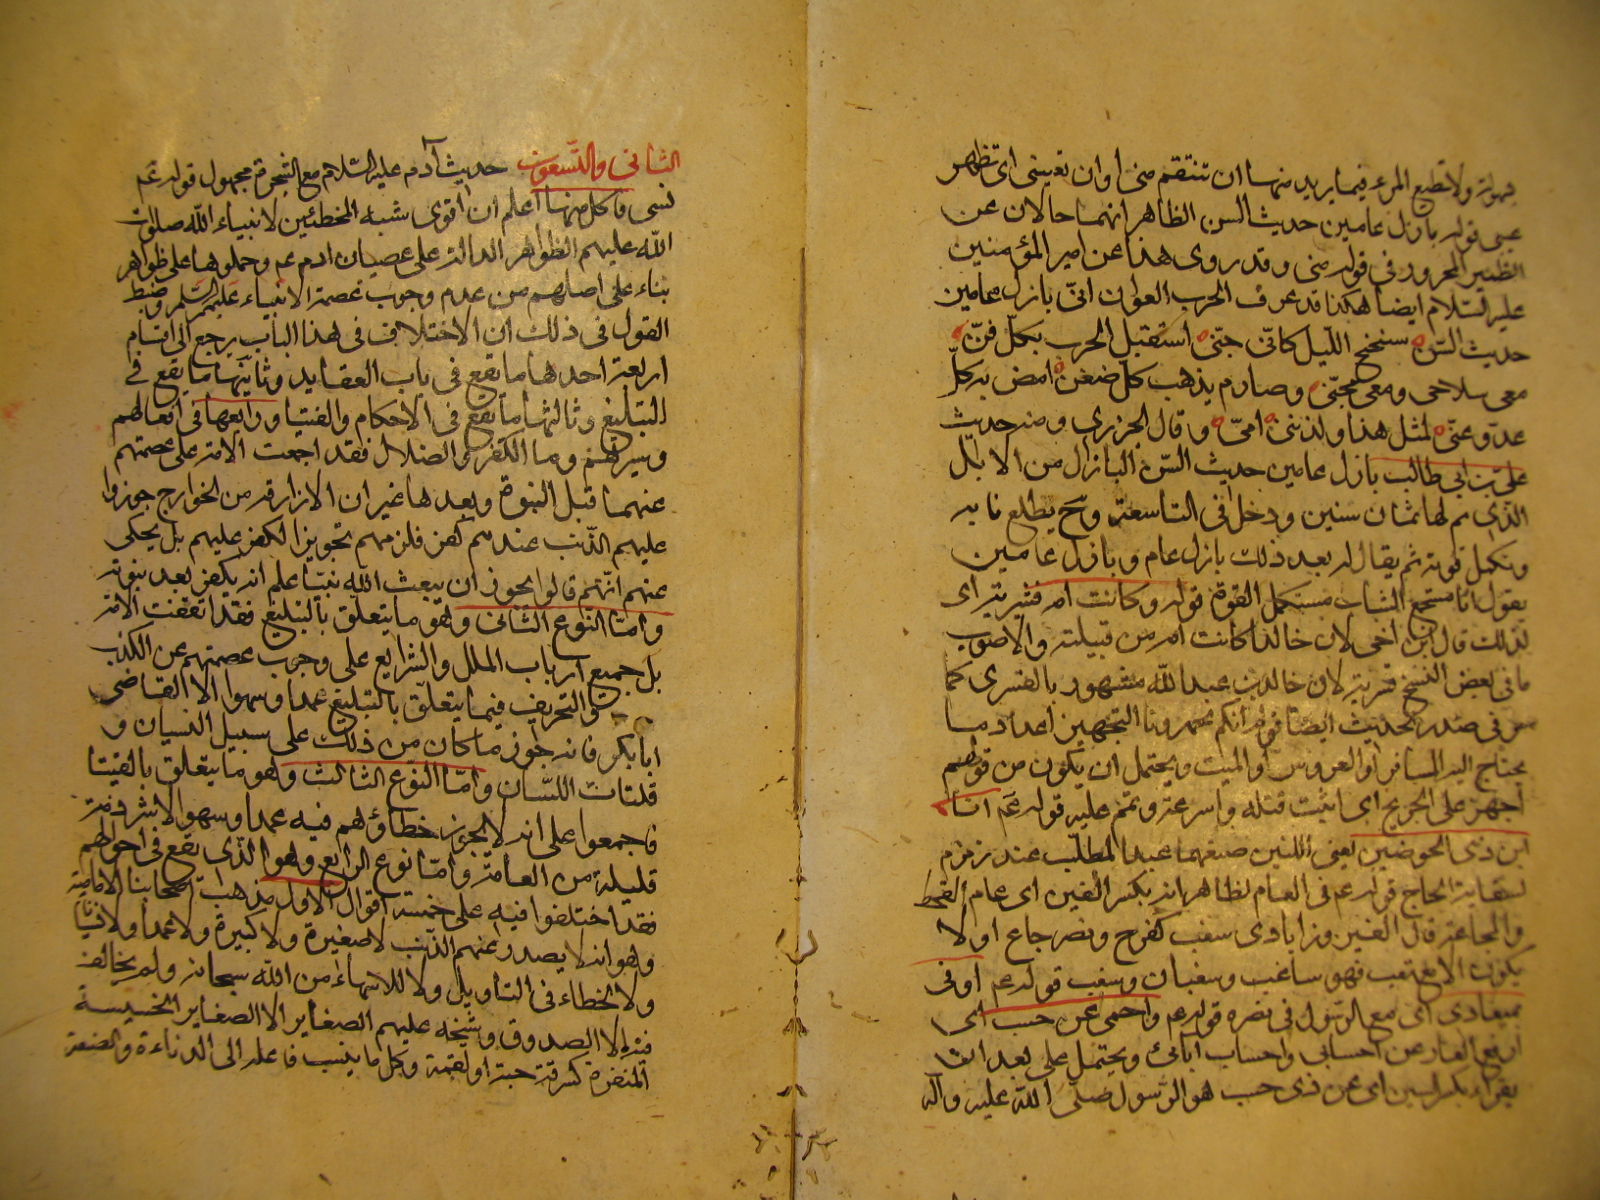 ولا تطيع المرء فيما يريد منها ان تنتقم منى او ان تعيبنى اى تظهر
عيبى قوله بازل عامين حديث السن الظاهر انهما حالان عن
الضمير المجرور فى قوله منى وقد روى هذا عن امير المؤمنين
عليه السلام ايضا هكذا قد عرف الحرب العوان انى بازل عامين
حديث السن سنحنح الليل كانى جنى استقبل الحرب بكل فن
معى سلاحى ومعى مجنى وصارم يذهب كل ضغن امض به كل
عدو عنى لمثل هذا ولدتنى امى وقال الجزرى ومنه حديث
على بن ابى طالب بازل عامين حديث السن البازل من الابل
الذى تم لها ثمان سنين ودخل فى التاسعة وح يطلع نابه
وتكمل قوته ثم يقال له بعد ذلك بازل عام وبازل عامين
يقول انا مستجمع الشباب مستكمل القوة قوله وكانت امه قشيرية اى
لذلك قال ابن اخى لان خالدا كانت امه من قبيلته والاصوب
ما فى بعض النسخ قسرية لان خالد بن عبد الله مشهور بالقسرى كما
مر فى صدر الحديث ايضا قوله انكم تجهزونا التجهيز اعداد ما
يحتاج اليه المسافر او العروس او الميت ويحتمل ان يكون من قولهم
اجهز على الجريح اى اثبت قتله واسرعه وتمم عليه قوله عم انا
ابن ذى الحوضين يعنى اللذين صنعهما عبد المطلب عند زمزم
لسقاية الحاج قوله عم فى العام لظاهر انه بكسر الغين اى عام القحط
والمجاعة قال الفيروزابادى سغب كفرح ونصر جاع او لا
يكون الا مع تعب فهو ساغب وسغبان وسغب قوله عم اوفى
بميعادى اى مع الرسول فى نصره قوله عم واحمى عن حسب اى
ارفع العار عن احسابى واحساب ابائى ويحتمل على بعد ان
يقراء بكسر السين اى عن ذى حسب هو الرسول صلى الله عليه وآله
الثانى والتسعون حديث آدم عليه السلام مع الشجرة مجهول قوله عم
نسى فاكل منها اعلم ان اقوى شبه المخطئين لانبياء الله صلوات
الله عليهم الظواهر الدالة على عصيان ادم عم وحملوها على ظواهر
بناء على اصلهم من عدم وجوب عصمة الانبياء عليهم السلم وضبط
القول فى ذلك ان الاختلاف فى هذا الباب يرجع الى اقسام
اربعة احدها ما يقع فى باب العقايد وثانيها ما يقع فى
التبليغ وثالثها ما يقع فى الاحكام والفتيا ورابعها فى افعالهم
وسيرهم وما الكفر والضلال فقد اجمعت الامة على عصمتهم
عنهما قبل النبوة وبعدها غير ان الازارقة من الخوارج جوزوا
عليهم الذنب عندهم كفر فلزمهم تجويز الكفر عليهم بل يحكى
عنهم انهم قالوا يجوز ان يبعث الله نبيا علم انه يكفر بعد نبوته
واما النوع الثانى وهو ما يتعلق بالتبليغ فقد اتفقت الامة
بل جميع ارباب الملل والشرايع على وجوب عصمتهم عن الكذب
والتحريف فيما يتعلق بالتبليغ عمدا وسهوا الا القاضى
ابا بكر فانه جوز ما كان من ذلك على سبيل النسيان و
فلتات اللسان واما النوع الثالث وهو ما يتعلق بالفتيا
فاجمعوا على انه لا يجوز خطاؤهم فيه عمدا وسهوا الا شرذمة
قليلة من العامة واما نوع الرابع وهو الذى يقع فى احوالهم
فقد اختلفوا فيه على خمسة اقوال الاول مذهب اصحابنا الامامية
وهو انه لا يصدر عنهم الذنب لا صغيرة ولا كبيرة ولا عمدا ولا نسيانا
ولا لخطاء فى التاويل ولا للانهاء من الله سبحانه ولم يخالف
فيه الا الصدوق وشيخه عليهم الصغاير الا الصغاير الخسيسة
المنفرة كسرقة حبة او لقمة وكل ما ينسب فاعله الى الدناءة والضعة